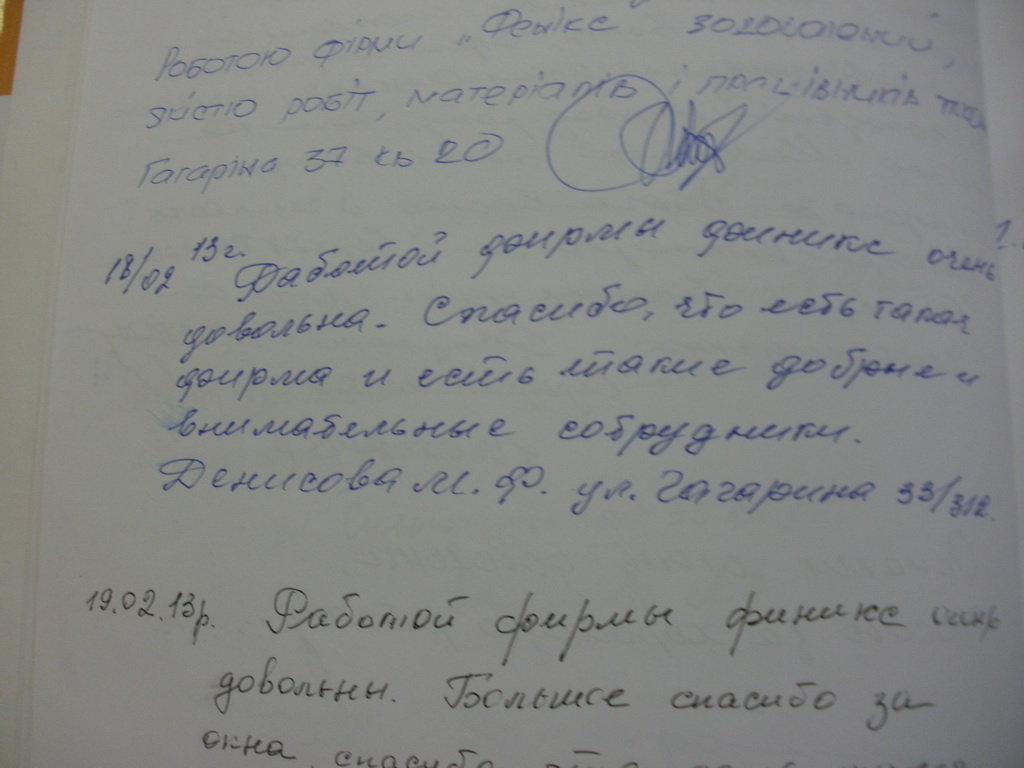 Роботою фірми „Фенікс"
якістю робіт, матеріалів і працівників
Гагаріна 37 кв 20
18/02 13г. Работой фирмы финикс очень
довольна. Спасибо, что есть такая
фирма и есть такие добрые и
внимательные собрудники.
Денисова М. Ф. ул. Гагарина 33/312.
19.02.13р. Работой фирмы финикс очень
довольны. Большое спасибо за
окна, спасибо